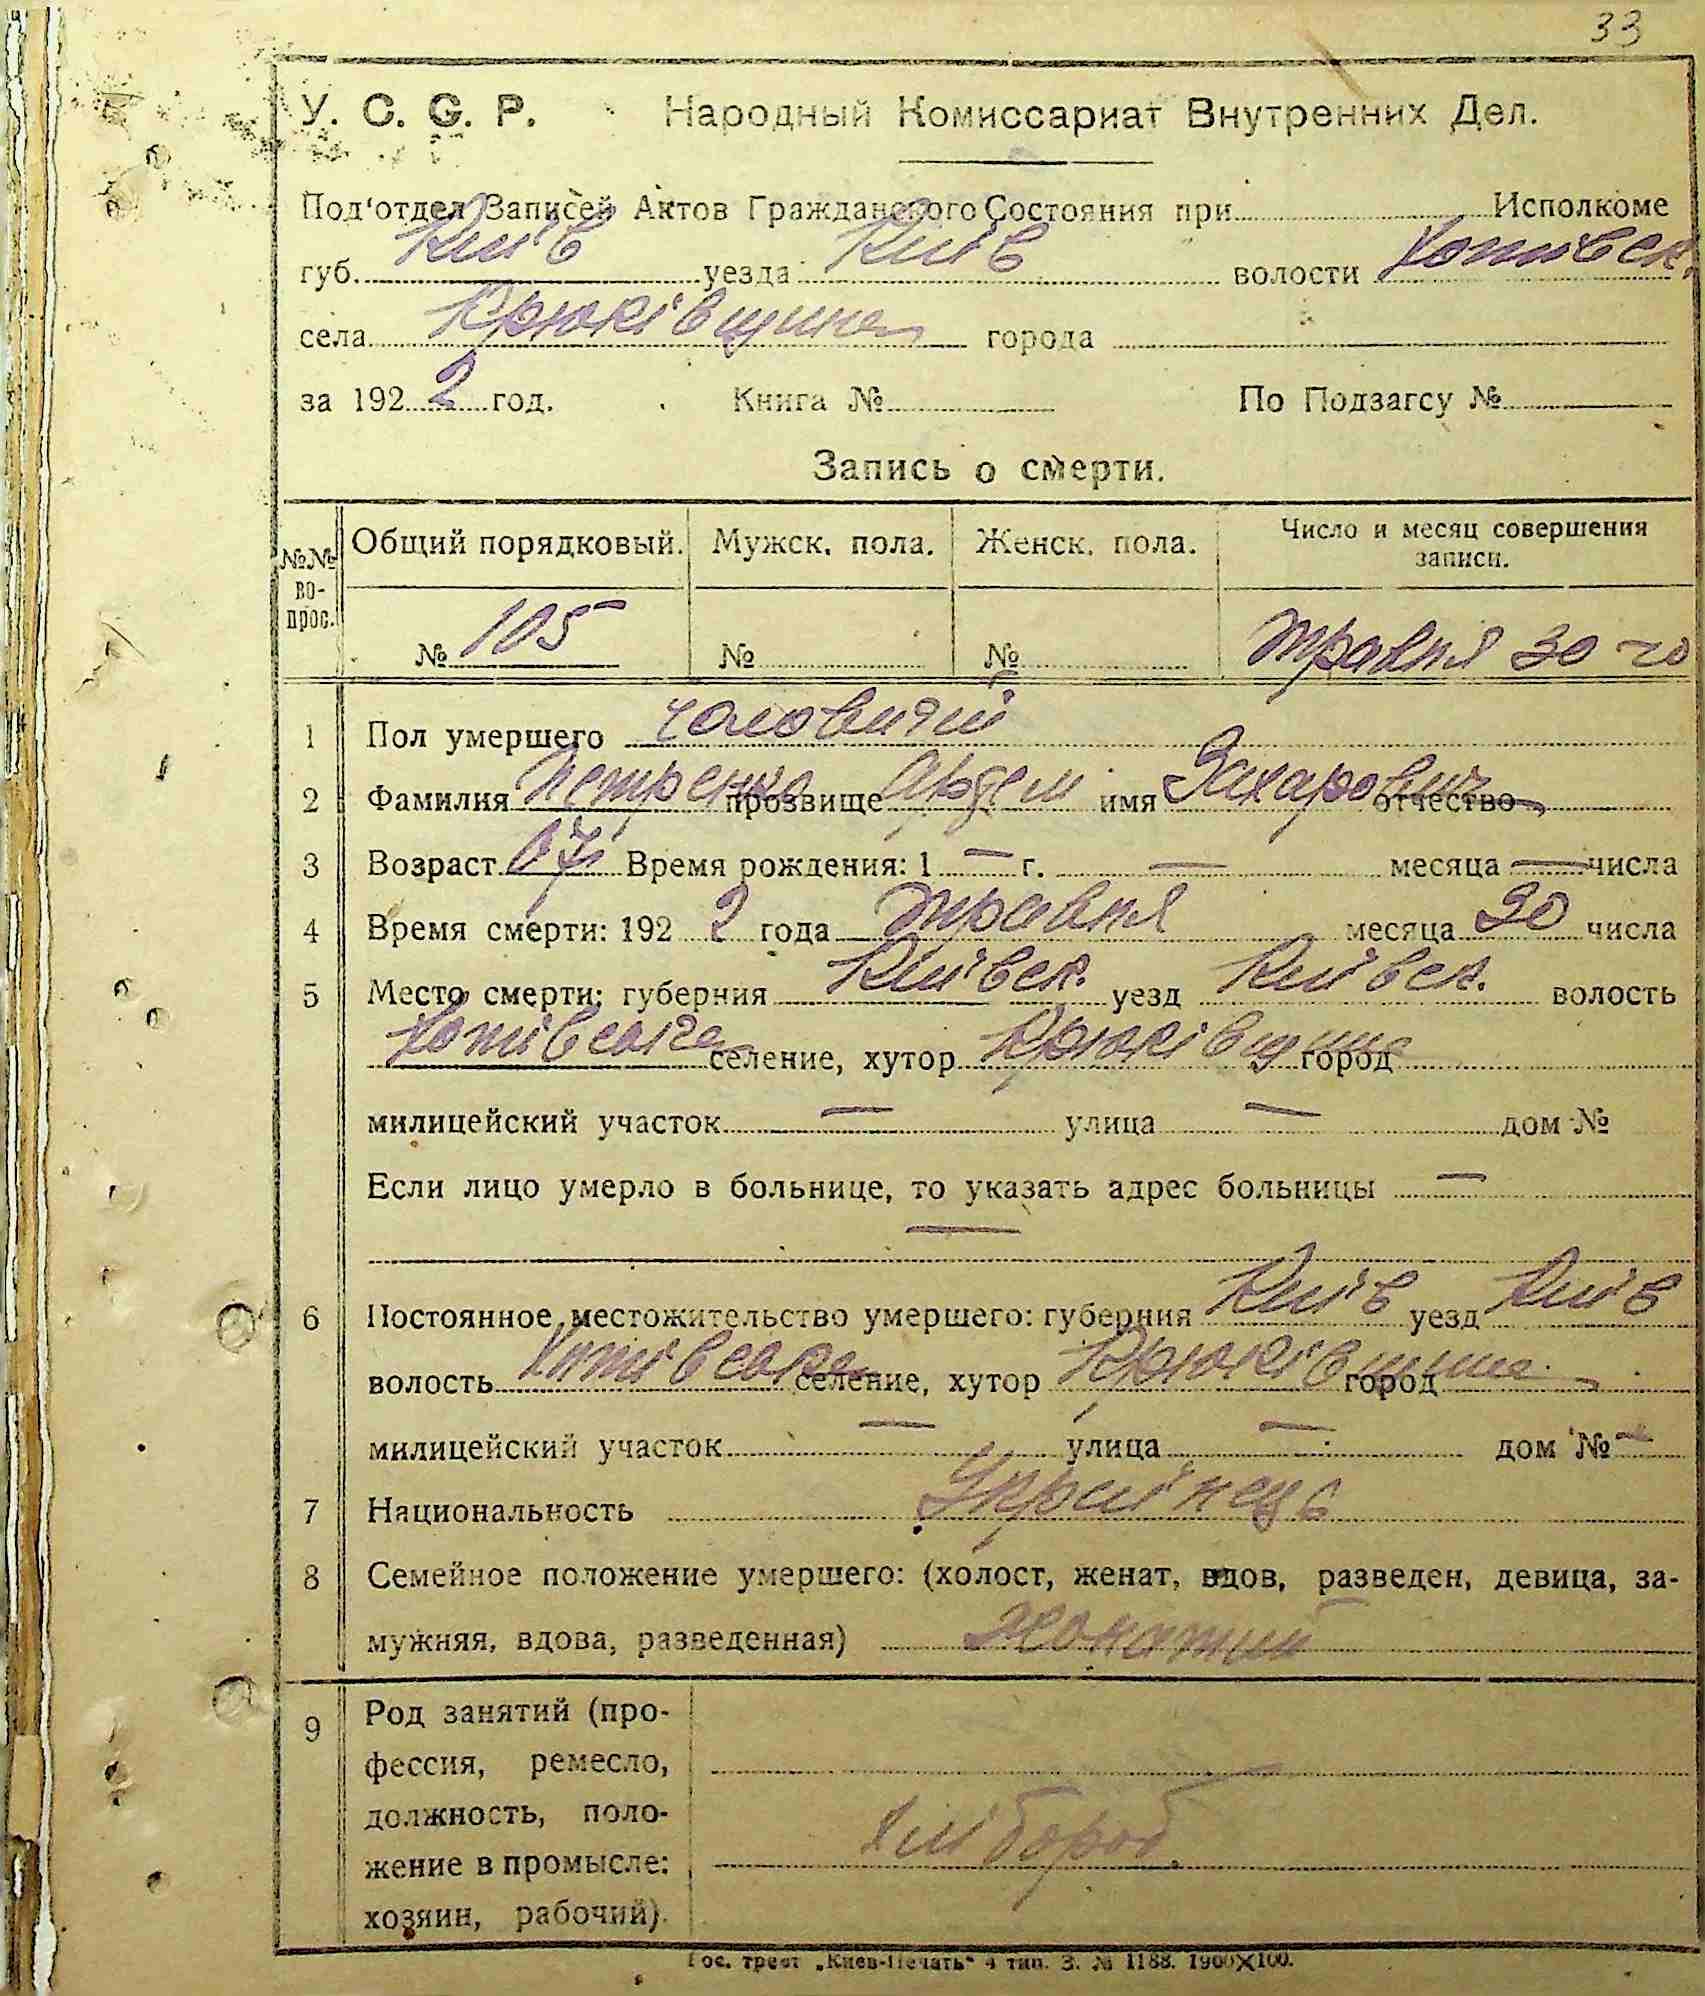 33
У. С. С. Р. Народный Комиссариат Внутренних Дел.
Под'отдел Записей Актов Гражданского Состояния при Исполкоме
губ. Київ уезда Київ волости Хотівськ.
села Крюківщина города
за 1922 год. Книга № По Подзагсу №
Запись о смерти.
№№ во- прос. Общий порядковый. Мужск. пола. Женск. пола. Число и месяц совершения записи.
№ 105 № № травня 30 го
1 Пол умершего чоловичій
2 Фамилия Петренко прозвище имя Захарович отчество
3 Возраст Время рождения: 1 — г. — месяца — числа
4 Время смерти: 1922 года травня месяца 30 числа
5 Место смерти: губерния Київск. уезд Київск. волость
Хотівська селение, хутор Крюківщина город
милицейский участок — улица — дом №
Если лицо умерло в больнице, то указать адрес больницы —
—
6 Постоянное местожительство умершего: губерния Київ уезд Київ
волость Хотівська селение, хутор Крюківщина город
милицейский участок — улица — дом № —
7 Национальность Українець
8 Семейное положение умершего: (холост, женат, вдов, разведен, девица, за-
мужняя, вдова, разведенная) Жонатий
9 Род занятий (про-
фессия, ремесло,
должность, поло-
жение в промысле:
хозяин, рабочий).
хлібороб.
Гос. трест „Киев-Печать" 4 тип. З. № 1188. 1900×100.